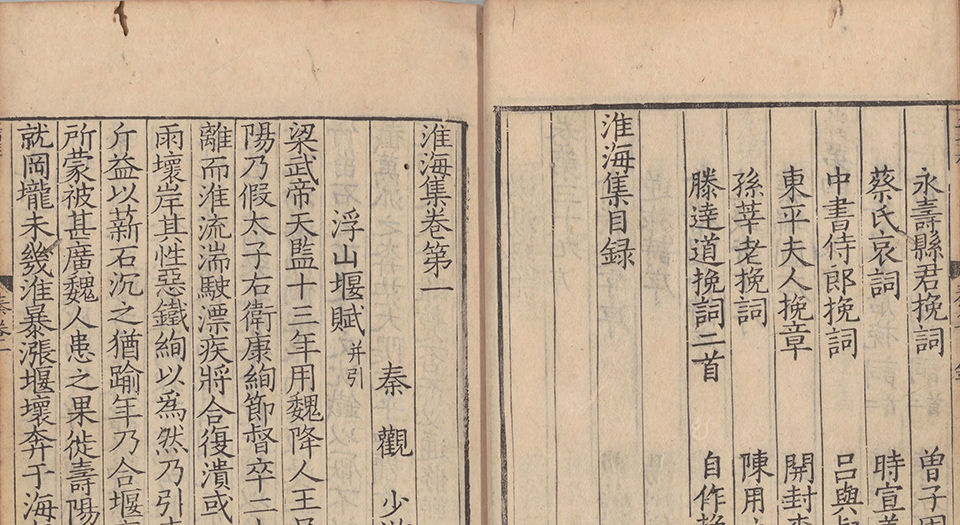 永壽縣君挽詞 曾子
蔡氏哀詞 時宣
中書侍郎挽詞 呂與
東平夫人挽章 開封
孫莘老挽詞 陳用
滕達道挽詞二首 自作挽
淮海集目録
淮海集卷第一
秦觀 少
浮山堰賦并引
梁武帝天監十三年用魏降人王
陽乃假太子右衛康絢節督卒二
離而淮流湍駛漂疾將合復潰或
雨壞岸其性惡鐵絢以爲然乃引
斤益以薪石沉之猶踰年乃合堰
所蒙被甚廣魏人患之果徙壽陽
就岡壠未幾淮暴漲堰壞奔于海